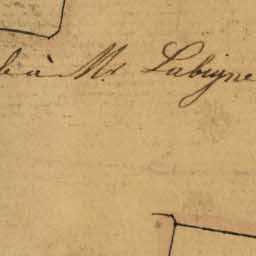 à Mr Labigne